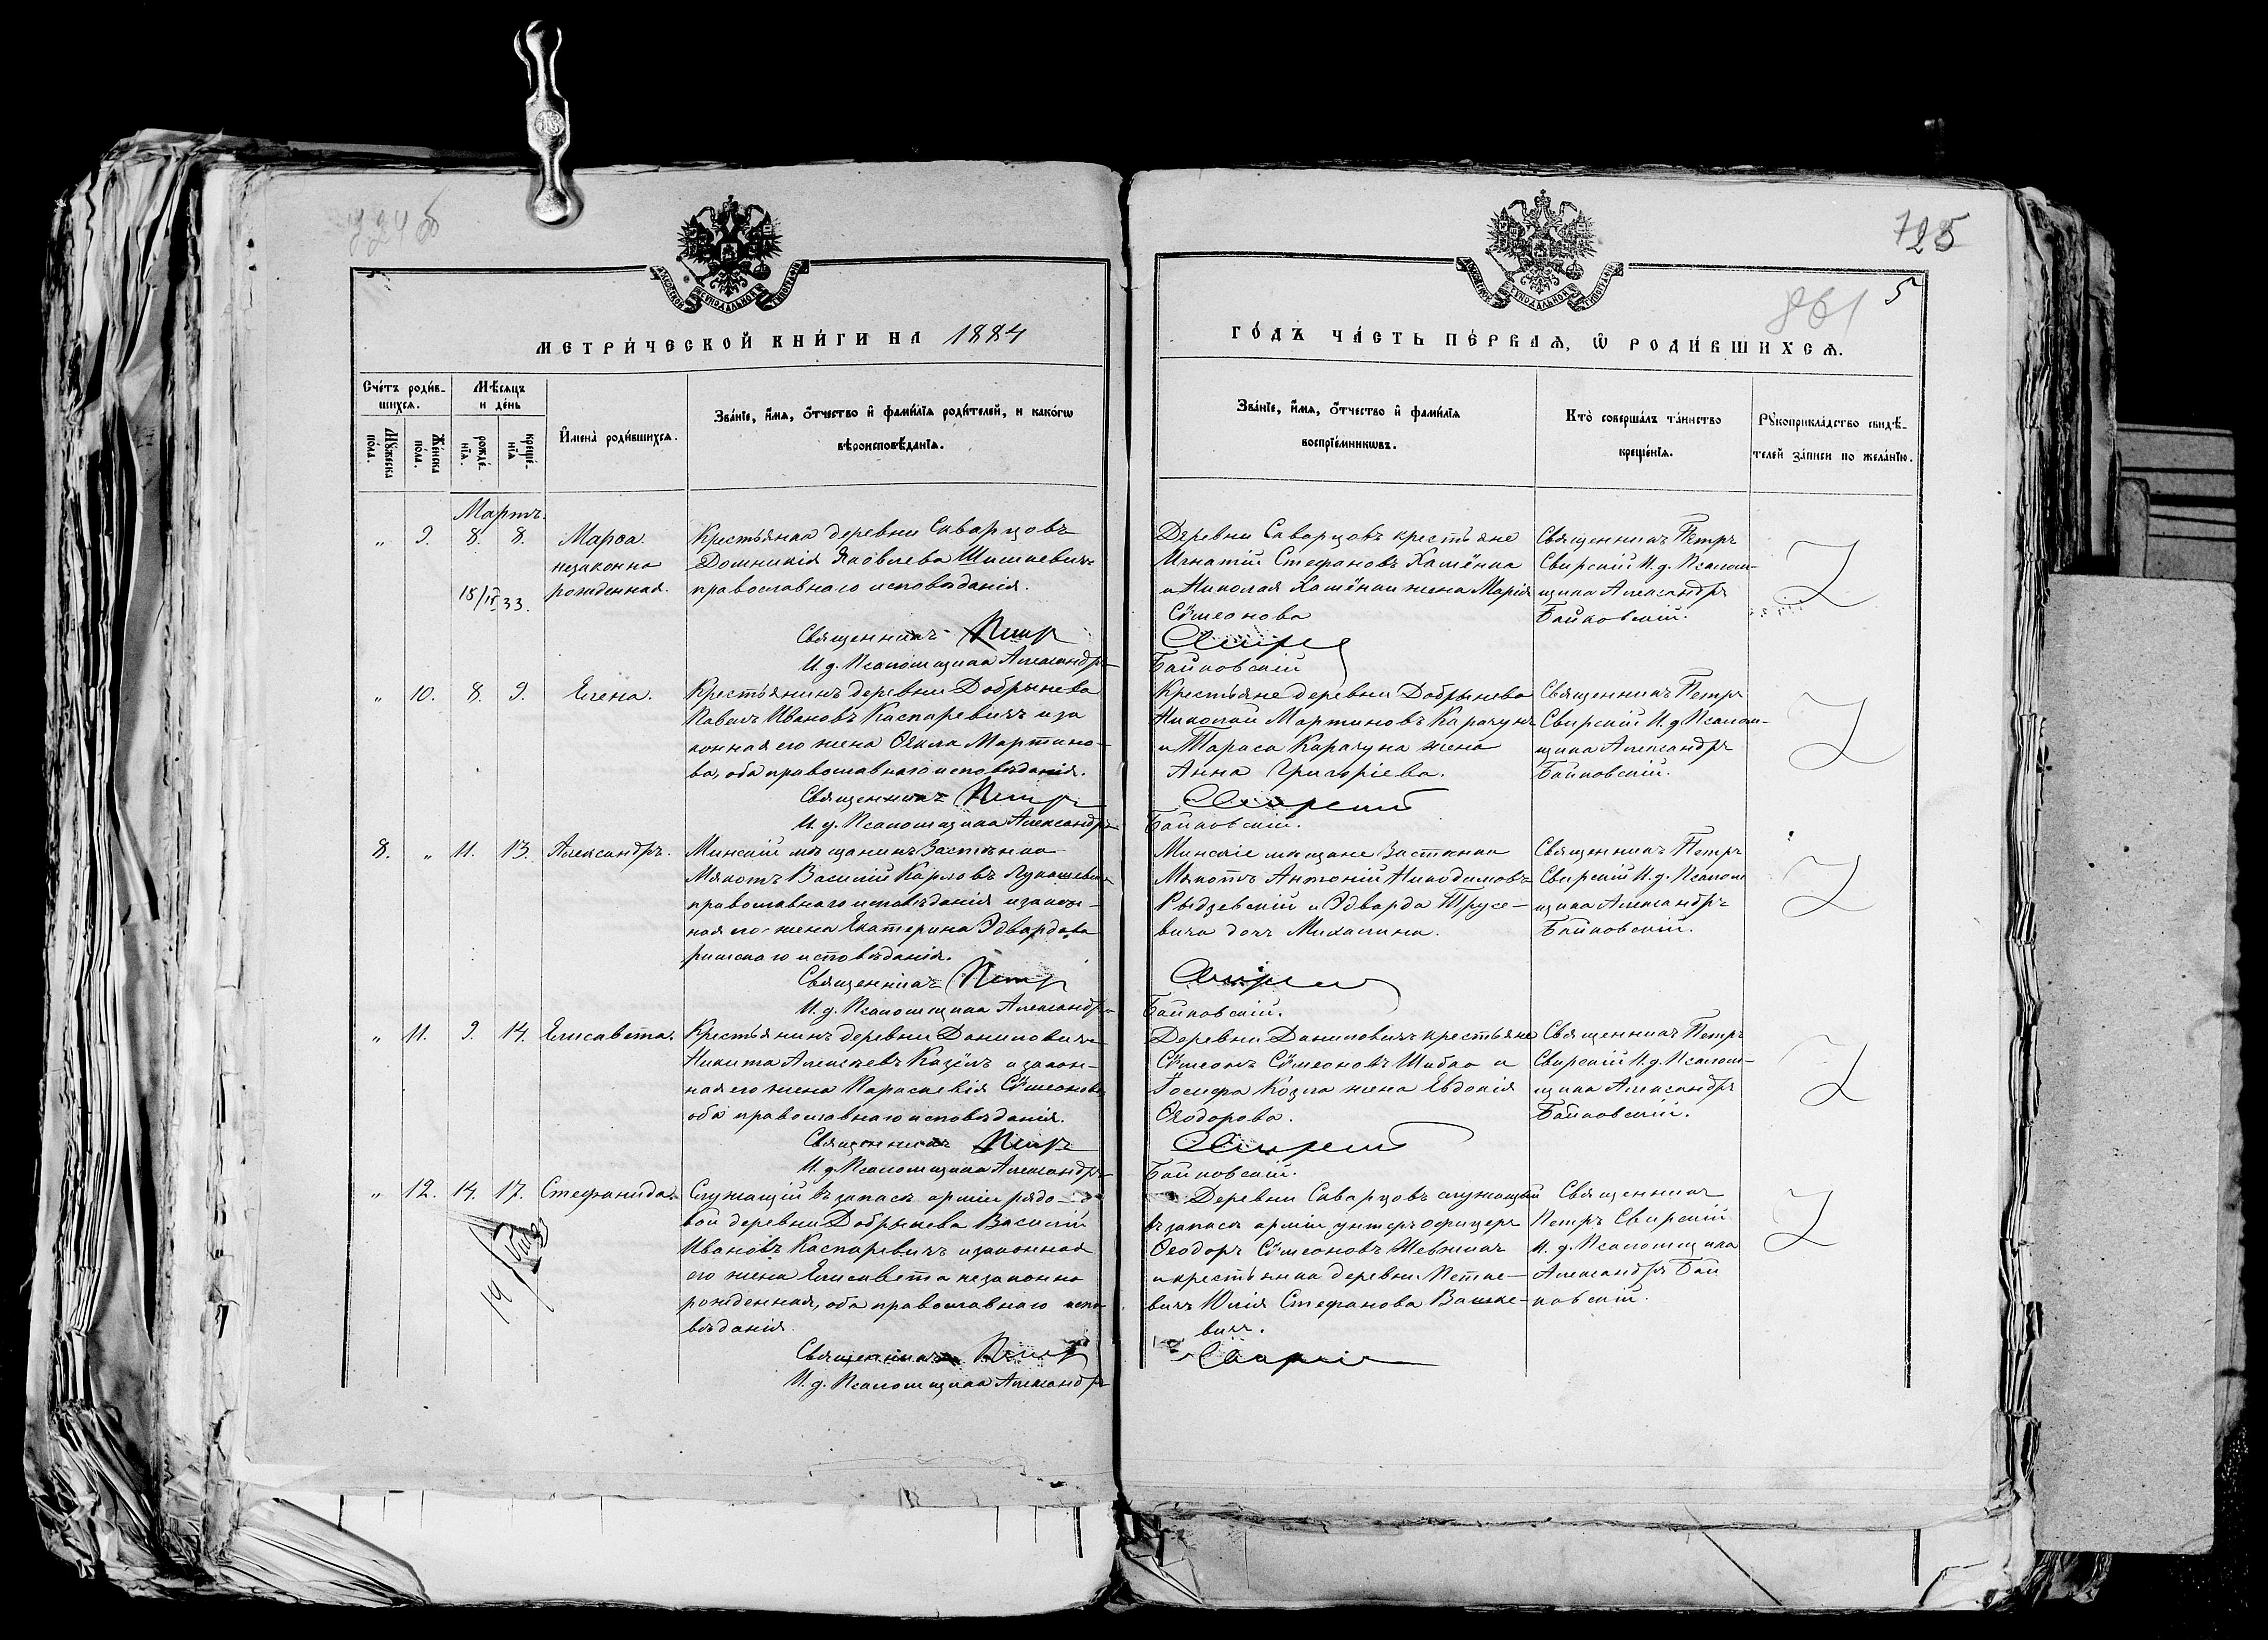 724 б
725
861
5
МЕТРИ́ЧЕСКОЙ КНИ́ГИ НА 1884
ГО́ДЪ ЧА́СТЬ ПЕ́РВАѦ, Ѡ҆ РОДИ́ВШИХСѦ.
Сче́тъ роди́в-
шихсѧ.
Мѣ́сѧцъ
и де́нь
Мꙋ́жеска
по́ла.
Же́нска
по́ла.
рожде́-
нїѧ.
креще́-
нїѧ
И҆мена̀ роди́вшихсѧ.
Зва́нїе, и҆́мѧ, ѻ҆́тчество и҆ фами́лїѧ роди́телей, и како́гѡ
вѣроисповѣ́данїѧ.
Зва́нїе, и҆́мѧ, ѻ҆́тчество и҆ фами́лїѧ
воспрїе́мникѡвъ.
Кто̀ соверша́лъ та́инство
креще́нїѧ.
Рꙋкоприкла́дство свидѣ́-
телей за́писи по жела́нїю.
Мартъ.
„ 9. 8. 8. Марѳа.
незаконно
рожденная.
15/IV 33.
Крестьянка деревни Саварцовъ
Домникія Яковлева Шишкевичъ
православнаго исповѣданія.
Священникъ Петръ
И. д. Псаломщика Александръ
Деревни Саварцовъ крестьяне
Игнатій Стефановъ Хамёнка
и Николая Хамёнки жена Марія
Сѵмеонова
Байковскій
Священникъ Петръ
Свирскій И. д. Псалом-
щика Александръ
Байковскій.
„ 10. 8. 9. Елена.
Крестьянинъ деревни Добрынева
Павелъ Ивановъ Каспаревичъ и за
конная его жена Ѳекла Мартино-
ва, оба православнаго исповѣданія.
Священникъ Петръ
И. д. Псаломщика Александръ
Крестьяне деревни Добрынева
Николай Мартиновъ Карачунъ
и Тараса Карачуна жена
Анна Григоріева.
Свирскій
Байковскій.
Священникъ Петръ
Свирскій И. д. Псалом-
щика Александръ
Байковскій.
8. „ 11. 13. Александръ.
Минскій мѣщанинъ Застѣнка
Мякотъ Василій Карловъ Лукашевичъ
православнаго исповѣданія и закон-
ная его жена Екатерина Эдвардова
римскаго исповѣданія.
Священникъ Петръ
И. д. Псаломщика Александръ
Минскіе мѣщане Застѣнка
Мякотъ Антоній Никодимовъ
Рыдзевскій и Эдварда Трусе-
вича дочь Михалина.
Байковскій.
Священникъ Петръ
Свирскій И. д. Псалом
щика Александръ
Байковскій.
„ 11. 9. 14. Елисавета.
Крестьянинъ деревни Даниловичъ
Никита Алексѣевъ Казёлъ и закон-
ная его жена Параскевія Сѵмеонова
оба православнаго исповѣданія.
Священникъ Петръ
И. д. Псаломщика Александръ
Деревни Даниловичъ крестьяне
Сѵмеонъ Сѵмеоновъ Шибко и
Іосифа Козла жена Евдокія
Ѳеодорова.
Свирскій
Байковскій.
Священникъ Петръ
Свирскій И. д. Псалом-
щика Александръ
Байковскій.
„ 12. 14. 17. Стефанида.
Служащій въ запасѣ арміи рядо-
вой деревни Добрынева Василій
Ивановъ Каспаревичъ и законная
его жена Елисавета незаконно
рожденная, оба православнаго испо-
вѣданія.
Священникъ Петръ
И. д. Псаломщика Александръ
Деревни Саварцовъ служащій
въ запасѣ арміи унтеръ офицеръ
Ѳеодоръ Сѵмеоновъ Шевчикъ
и крестьянка деревни Петке-
вичъ Юлія Стефанова Вашке-
вичъ.
Свирскій
Священникъ
Петръ Свирскій
И. д. Псаломщика
Александръ Бай
ковскій.